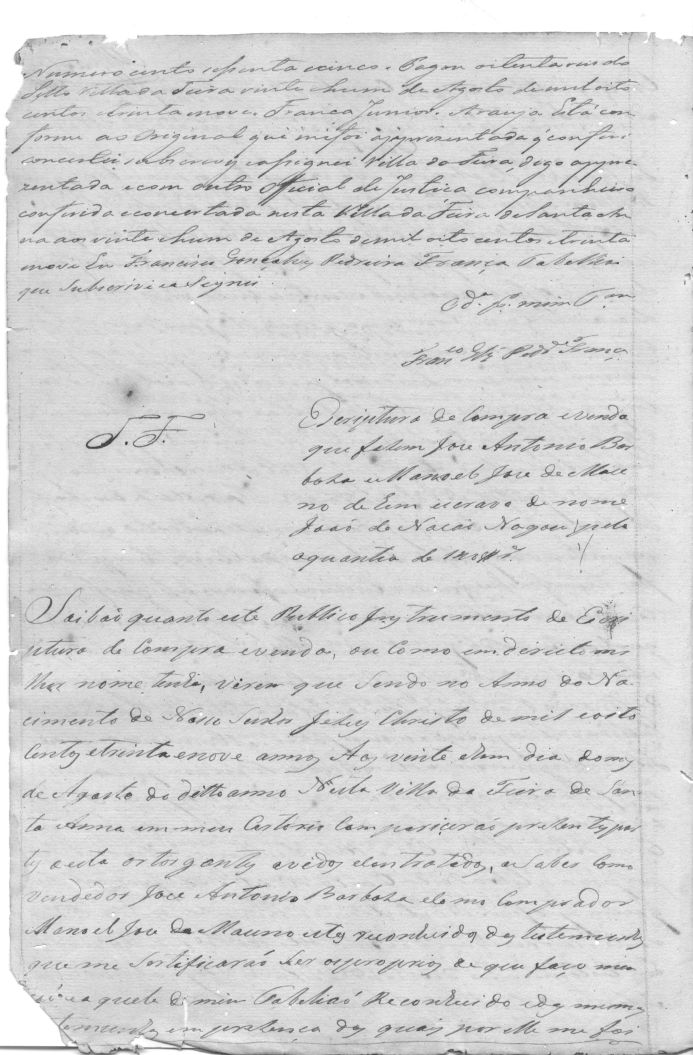 Numero cento setenta ecinco. Pagou oitenta reis do
Sello Villa da Feira vinte ehum de Agosto de mil oito
centos etrinta nove. Franca Junior. Araujo Está con
forme ao Original que me foi appresentada q̃ conferi
concertei subscrevy e assignei Villa da Feira, digo appre
zentada e com outro Official de Justiça companheiro
conferida econcertada nesta Villa da Feira de Santa An
na aos vinte ehum de Agosto de mil oito centos etrinta
nove Eu Francisco Gonçalvez Pedreira França Tabelliaõ
que Subscrivi e a Signei.
C. da. p. mim T.am
Fran.co Glz Pedr.a França
S. F.
Escriptura de Compra evenda
que fazem Joze Antonio Bar
boza e Manoel Joze de
no de hum escravo de nome
Joaõ de Naçaõ Nagou pela
a quantia de
Saibaõ quanto este Publico Instrumento de Escri
ptura de Compra evenda, ou Como em direicto mi
lhor nome tenha, virem que Sendo no Anno do Na
cimento de Nosso Senhor Jezus Christo de mil eoito
Centos etrinta enove annos Aos vinte ehum dia do mes
de Agosto do ditto anno Nesta Villa da Feira de San
ta Anna em meu Cartorio Compareceraõ prezentes par
tes a esta outorgantes avidos econtratados, a Saber Como
vendedor Joze Antonio Barboza e Como Comprador
Manoel Joze de reconhecidos das testemunhas
que me Sertificaraõ Ser os proprios de que faço men
çaõ e aquele de mim Tabeliaõ Reconhecido e das mesmas
testemunhas em prezença das quais por elle me foi